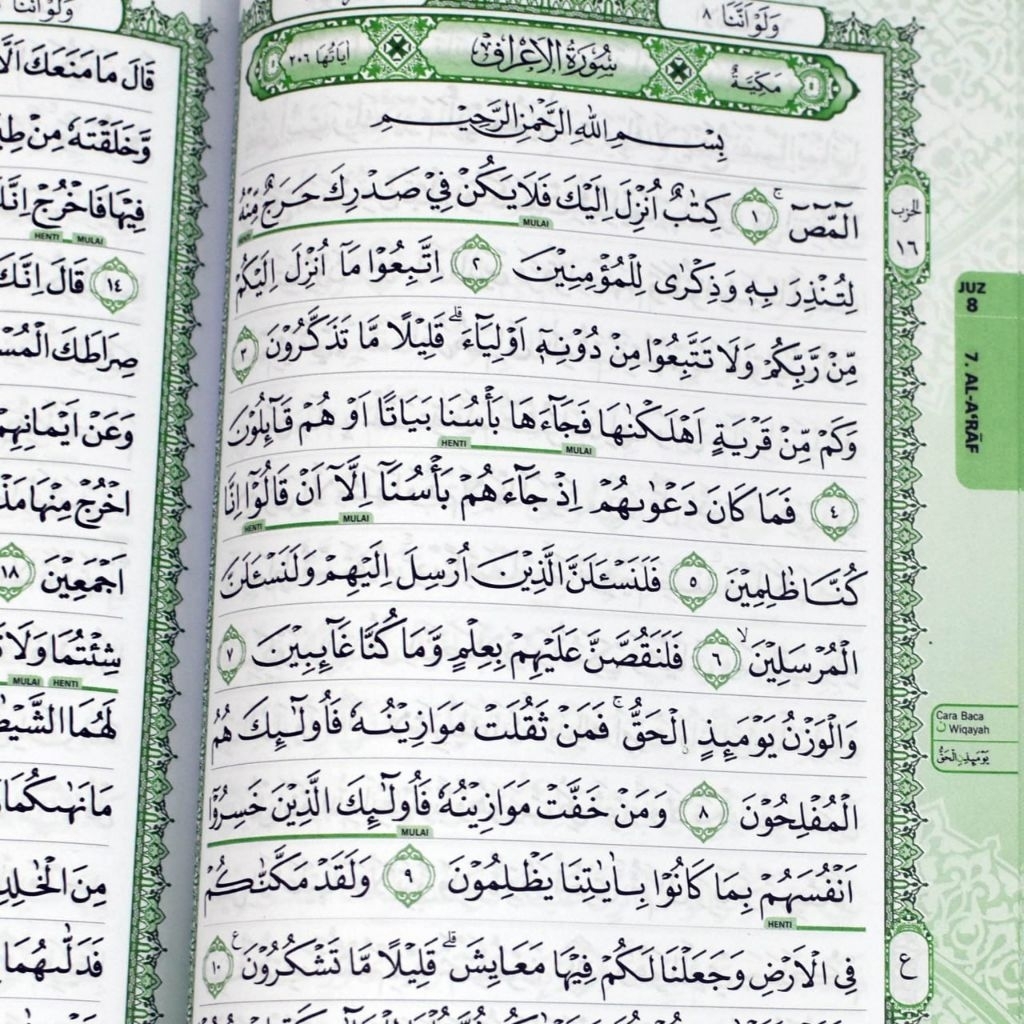 وَلَوْ اَنَّنَا ٨
سُوْرَةُ الْاَعْرَافِ
مَكِّيَّةٌ
اٰيَاتُهَا ٢٠٦
بِسْمِ اللّٰهِ الرَّحْمٰنِ الرَّحِيْمِ
الۤمّۤصۤ ۚ ١ كِتٰبٌ اُنْزِلَ اِلَيْكَ فَلَا يَكُنْ فِيْ صَدْرِكَ حَرَجٌ مِّنْهُ
MULAI
لِتُنْذِرَ بِهٖ وَذِكْرٰى لِلْمُؤْمِنِيْنَ ٢ اِتَّبِعُوْا مَآ اُنْزِلَ اِلَيْكُمْ
مِّنْ رَّبِّكُمْ وَلَا تَتَّبِعُوْا مِنْ دُوْنِهٖٓ اَوْلِيَاۤءَ ۗ قَلِيْلًا مَّا تَذَكَّرُوْنَ ٣
وَكَمْ مِّنْ قَرْيَةٍ اَهْلَكْنٰهَا فَجَاۤءَهَا بَأْسُنَا بَيَاتًا اَوْ هُمْ قَاۤىِٕلُوْنَ
HENTI MULAI
٤ فَمَا كَانَ دَعْوٰىهُمْ اِذْ جَاۤءَهُمْ بَأْسُنَآ اِلَّآ اَنْ قَالُوْٓا اِنَّا
HENTI MULAI
كُنَّا ظٰلِمِيْنَ ٥ فَلَنَسْـَٔلَنَّ الَّذِيْنَ اُرْسِلَ اِلَيْهِمْ وَلَنَسْـَٔلَنَّ
الْمُرْسَلِيْنَ ۙ ٦ فَلَنَقُصَّنَّ عَلَيْهِمْ بِعِلْمٍ وَّمَا كُنَّا غَاۤىِٕبِيْنَ ٧
وَالْوَزْنُ يَوْمَىِٕذِ ِۨالْحَقُّ ۚ فَمَنْ ثَقُلَتْ مَوَازِيْنُهٗ فَاُولٰۤىِٕكَ هُمُ
الْمُفْلِحُوْنَ ٨ وَمَنْ خَفَّتْ مَوَازِيْنُهٗ فَاُولٰۤىِٕكَ الَّذِيْنَ خَسِرُوْٓا
MULAI
اَنْفُسَهُمْ بِمَا كَانُوْا بِاٰيٰتِنَا يَظْلِمُوْنَ ٩ وَلَقَدْ مَكَّنّٰكُمْ
HENTI
فِى الْاَرْضِ وَجَعَلْنَا لَكُمْ فِيْهَا مَعَايِشَ ۗ قَلِيْلًا مَّا تَشْكُرُوْنَ ࣖ ١٠
الحزب
١٦
ع
JUZ
8
7. AL-A‘RĀF
Cara Baca
ن Wiqayah
يَوْمَىِٕذِ ِۨالْحَقُّ
وَلَوْ اَنَّنَا
قَالَ مَا مَنَعَكَ
وَّخَلَقْتَهٗ مِنْ
فِيْهَا فَاخْرُجْ
HENTI MULAI
١٤ قَالَ اِنَّكَ
صِرَاطَكَ
وَعَنْ اَيْمَانِهِمْ
اخْرُجْ مِنْهَا
اَجْمَعِيْنَ ١٨
شِئْتُمَا وَلَا
MULAI HENTI
لَهُمَا
مَا نَهٰىكُمَا
مِنَ
فَدَلّٰىهُمَا